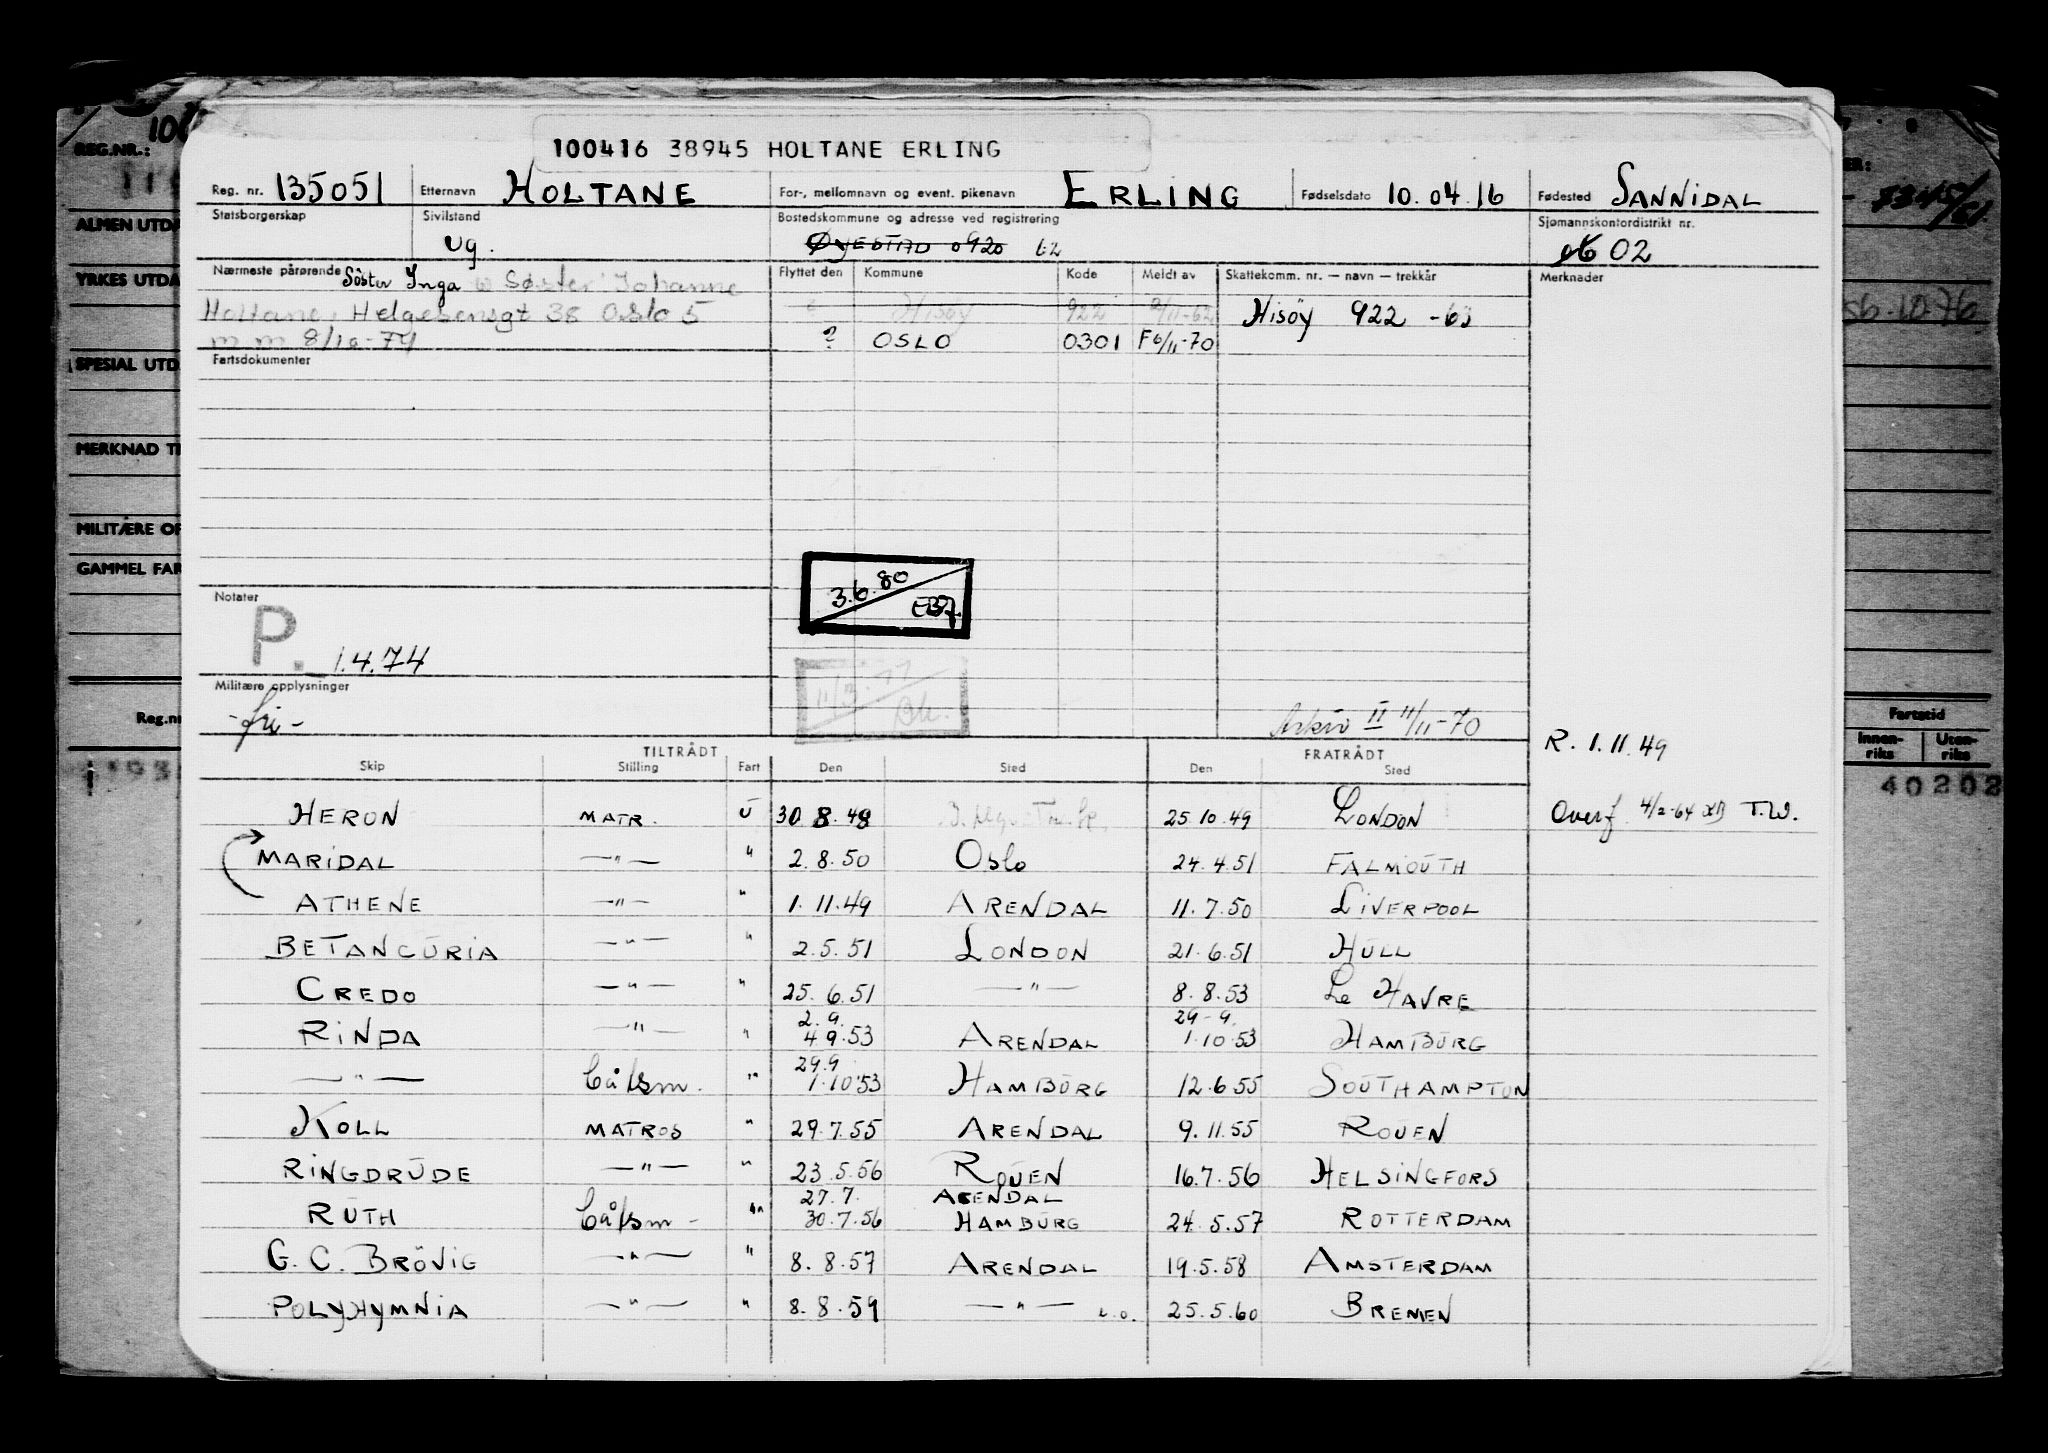 100416 38945 HOLTANE ERLING
Reg. nr. 135051 Etternavn HOLTANE For-, mellomnavn og event. pikenavn ERLING Fødselsdato 10.04.16 Fødested SANNIDAL
Statsborgerskap Sivilstand ug. Bostedskommune og adresse ved registrering ØYESTAD 0920 62 Sjømannskontordistrikt nr. 02
Nærmeste pårørende Flyttet den Kommune Kode Meldt av Skattekomm. nr. — navn — trekkår Merknader
Søster Inga Søster Johanne
Holtane, Helgesensgt 38 Oslo 5 Hisøy 922 Hisöy 922 -63
m m 8/10-74 ? OSLO 0301 F 6/11-70
Fartsdokumenter
3.6.80
Notater
P. 1.4.74
Militære opplysninger
-fri- Arkiv II 11/11-70
R. 1.11.49
TILTRÅDT FRATRÅDT
Skip Stilling Fart Den Sted Den Sted
HERON MATR. U 30.8.48 25.10.49 LONDON Overf 4/2-64 T.W.
MARIDAL —"— " 2.8.50 Oslo 24.4.51 FALMOUTH
ATHENE —"— " 1.11.49 ARENDAL 11.7.50 LIVERPOOL
BETANCURIA —"— " 2.5.51 LONDON 21.6.51 HULL
CREDO —"— " 25.6.51 —"— 8.8.53 Le HAVRE
2.9. 29-9.
RINDA —"— " 4.9.53 ARENDAL 1.10.53 HAMBURG
29.9
—"— Båtsm. " 1.10.53 HAMBURG 12.6.55 SOUTHAMPTON
KOLL MATROS " 29.7.55 ARENDAL 9.11.55 ROUEN
RINGDRUDE —"— " 23.5.56 ROUEN 16.7.56 HELSINGFORS
27.7. ARENDAL
RUTH Båtsm - " 30.7.56 HAMBURG 24.5.57 ROTTERDAM
G. C. BRÖVIG —"— " 8.8.57 ARENDAL 19.5.58 AMSTERDAM
POLYHYMNIA —"— " 8.8.59 —"— u.o. 25.5.60 BREMEN
REG.NR.:
ALMEN UTD
YRKES UTDA
SPESIAL UTD
MERKNAD T
MILITÆRE OP
GAMMEL FAR
Reg.n
Fartstid
Innen-riks Uten-riks
40202